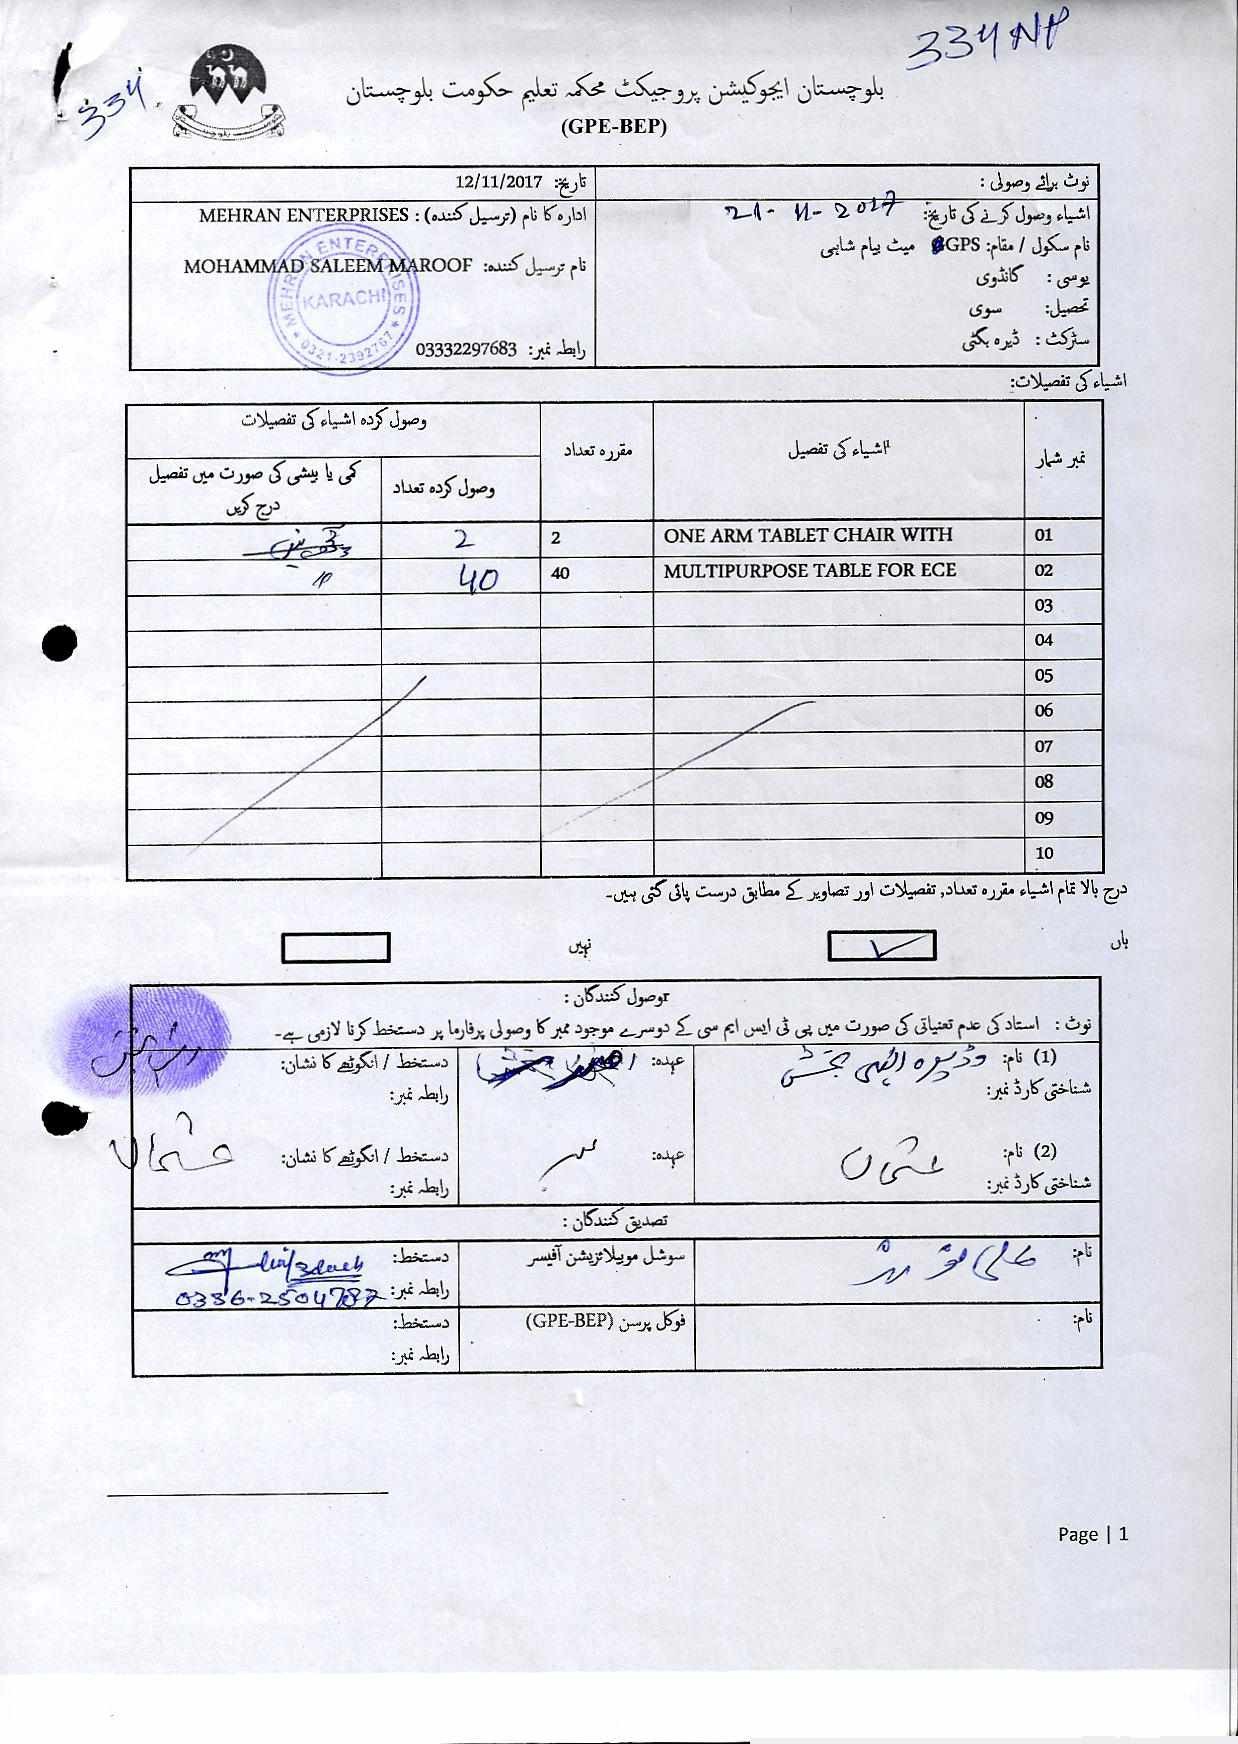 334 NP
334
بلوچستان ایجوکیشن پروجیکٹ محکمہ تعلیم حکومت بلوچستان
(GPE-BEP)
نوٹ برائے وصولی :
تاریخ: 12/11/2017
اشیاء وصول کرنے کی تاریخ: 21-11-2017
ادارہ کا نام (ترسیل کنندہ) : MEHRAN ENTERPRISES
نام سکول / مقام: GPS میٹ پیام شاہی
نام ترسیل کنندہ: MOHAMMAD SALEEM MAROOF
یوسی : گانڈوی
تحصیل: سوی
سٹرکٹ : ڈیرہ بگٹی
رابطہ نمبر: 03332297683
MEHRAN ENTERPRISES
KARACHI
0321-2392767
اشیاء کی تفصیلات:
نمبر شمار
اشیاء کی تفصیل
مقررہ تعداد
وصول کردہ اشیاء کی تفصیلات
وصول کردہ تعداد
کمی یا بیشی کی صورت میں تفصیل درج کریں
01 ONE ARM TABLET CHAIR WITH 2 2
02 MULTIPURPOSE TABLE FOR ECE 40 40
03
04
05
06
07
08
09
10
درج بالا تمام اشیاء مقررہ تعداد, تفصیلات اور تصاویر کے مطابق درست پائی گئی ہیں۔
ہاں
نہیں
وصول کنندگان :
نوٹ : استاد کی عدم تعنیاتی کی صورت میں پی ٹی ایس ایم سی کے دوسرے موجود ممبر کا وصولی پرفارما پر دستخط کرنا لازمی ہے۔
(1) نام: وڈیرہ الہی بخش
عہدہ:
دستخط / انگوٹھے کا نشان:
شناختی کارڈ نمبر:
رابطہ نمبر:
(2) نام: عثمان
عہدہ: ممبر
دستخط / انگوٹھے کا نشان: عثمان
شناختی کارڈ نمبر:
رابطہ نمبر:
تصدیق کنندگان :
نام:
سوشل موبیلائزیشن آفیسر
دستخط:
رابطہ نمبر: 0336-2504787
نام:
فوکل پرسن (GPE-BEP)
دستخط:
رابطہ نمبر:
Page | 1